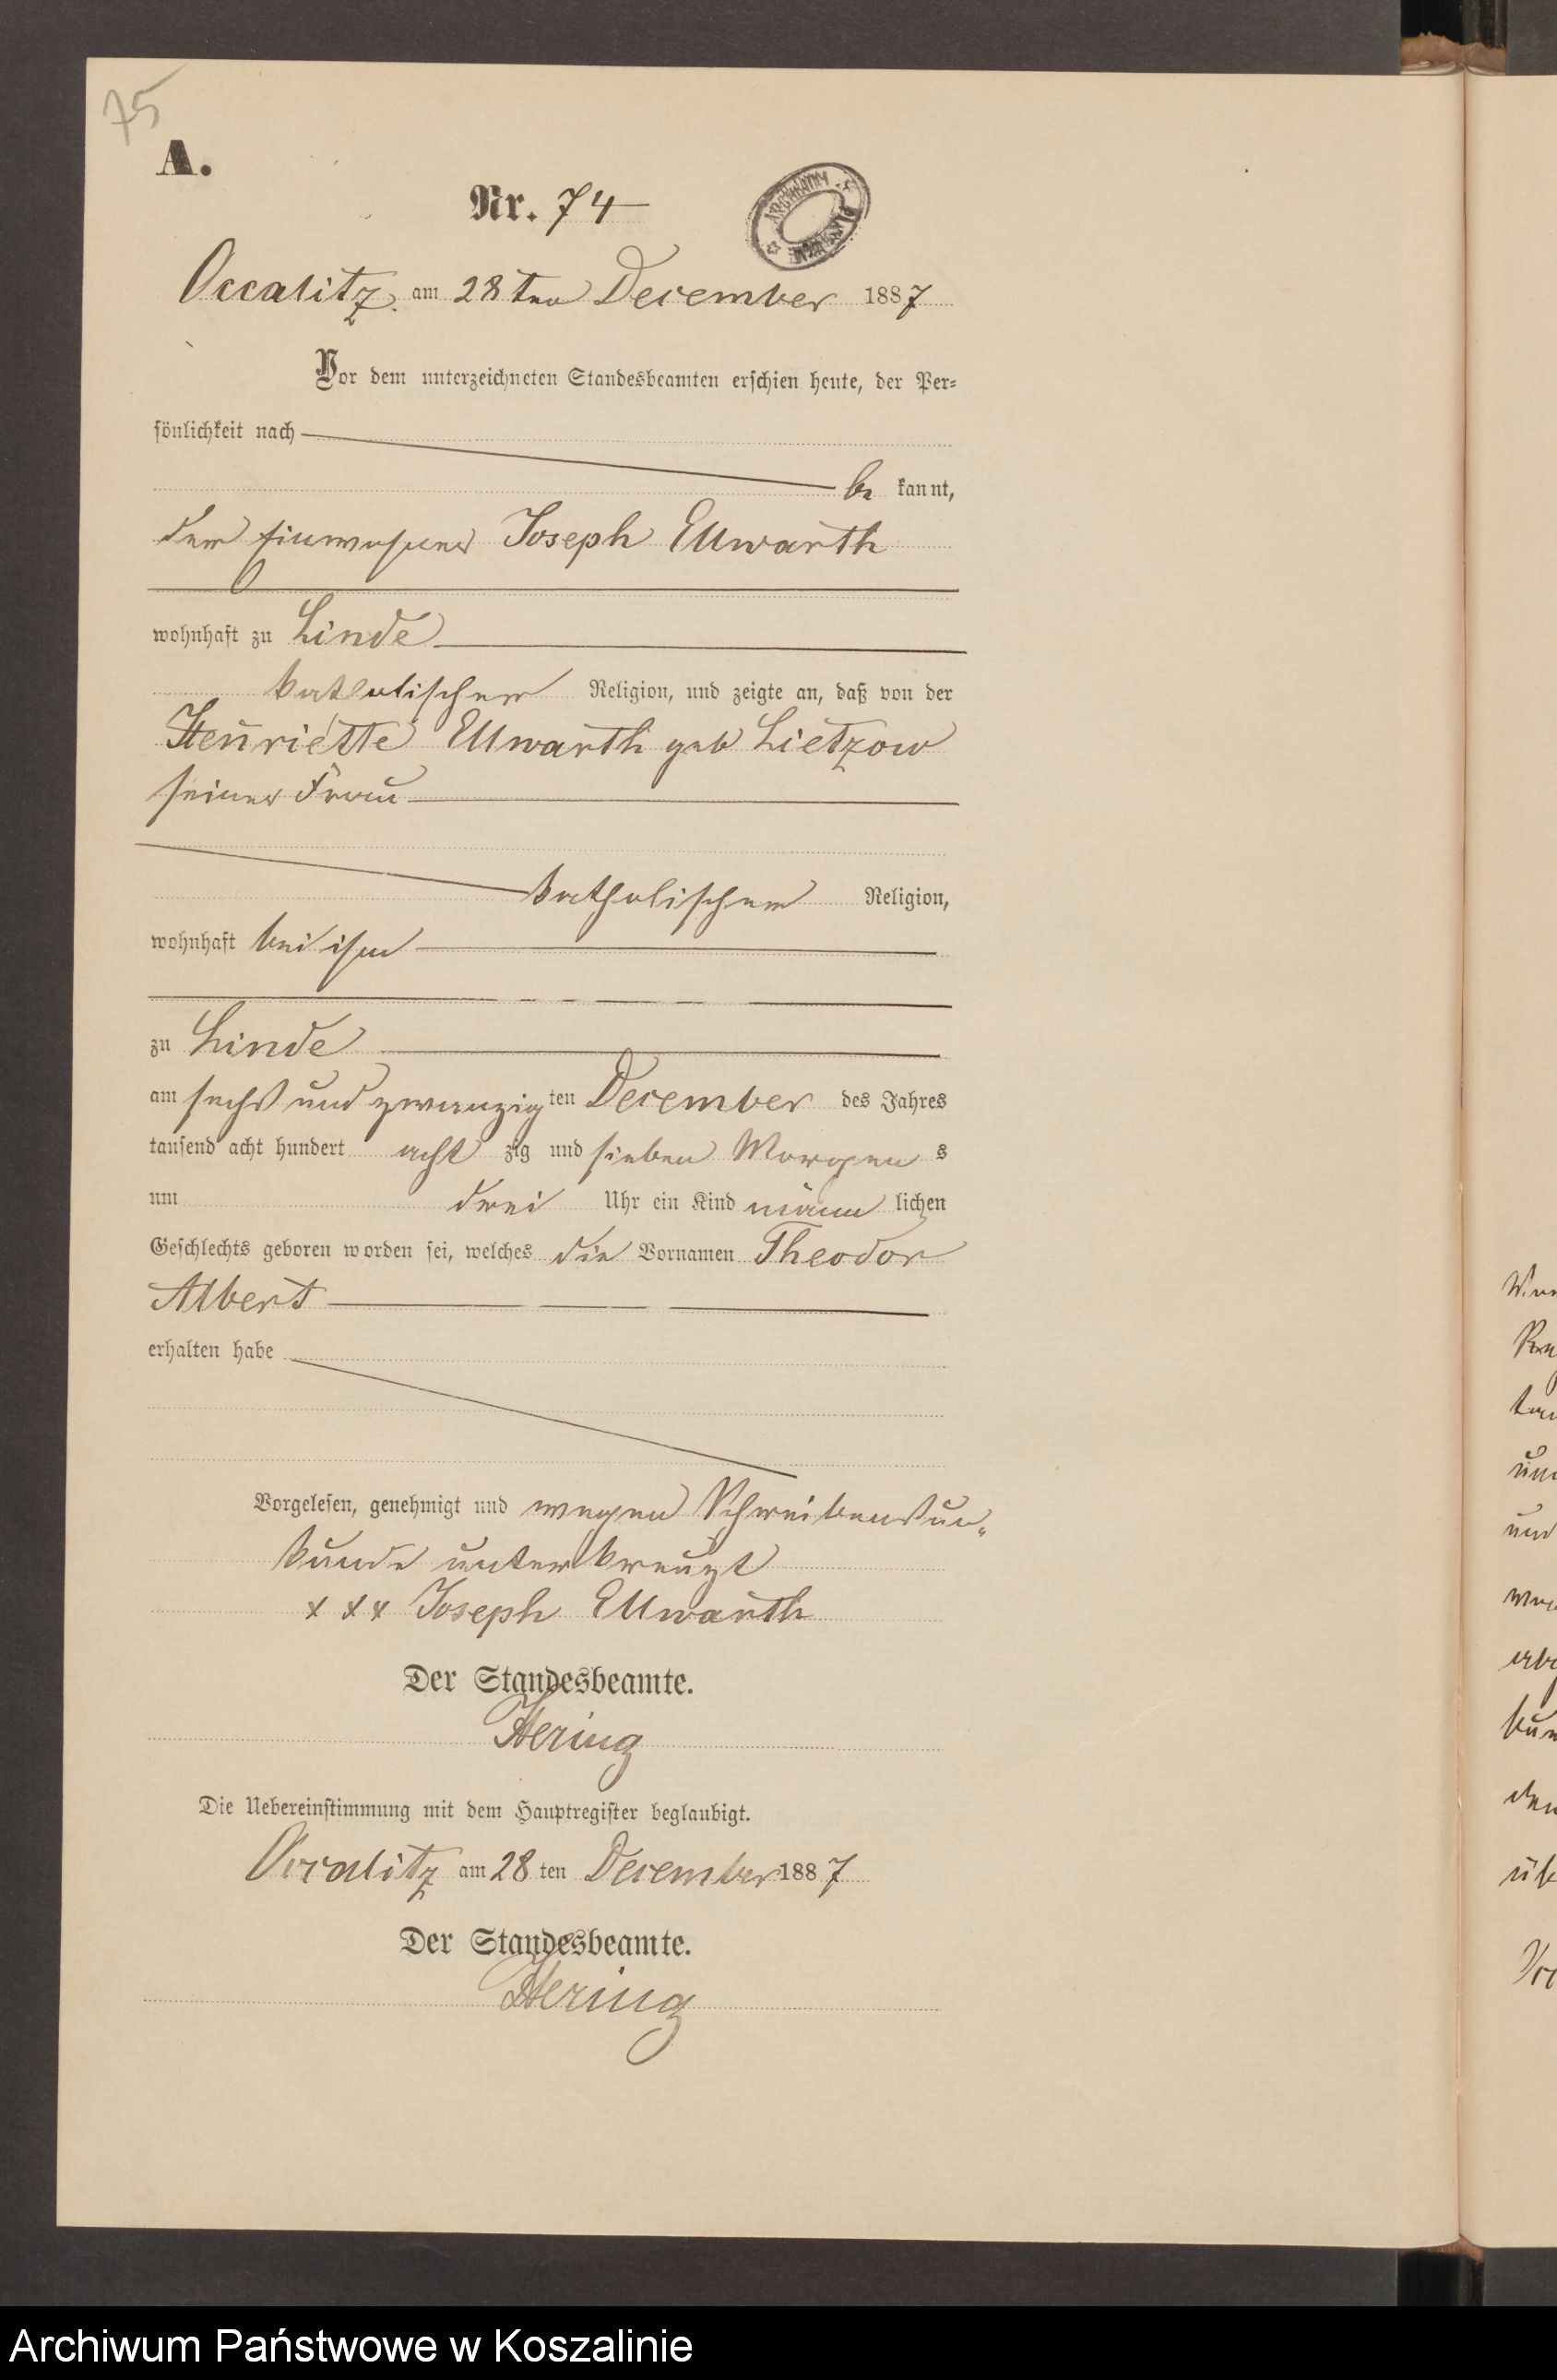 75
A.
Nr. 74
ARCHIWUM
Occalitz, am 28ten December 1887
Vor dem unterzeichneten Standesbeamten erschien heute, der Per=
sönlichkeit nach
be kannt,
der Einwohner Joseph Ellwarth
wohnhaft zu Linde
katholischer Religion, und zeigte an, daß von der
Henriette Ellwarth geb Lietzow
seiner Frau
katholischer Religion,
wohnhaft bei ihm
zu Linde
am sechs und zwanzig ten December des Jahres
tausend acht hundert acht zig und sieben Morgen s
um drei Uhr ein Kind männ lichen
Geschlechts geboren worden sei, welches die Vornamen Theodor
Albert
erhalten habe
Vorgelesen, genehmigt und wegen Schreibensun„
kunde unterkreuzt
x x x Joseph Ellwarth
Der Standesbeamte.
Hering
Die Uebereinstimmung mit dem Hauptregister beglaubigt.
Occalitz am 28 ten December 1887
Der Standesbeamte.
Hering
Archiwum Państwowe w Koszalinie